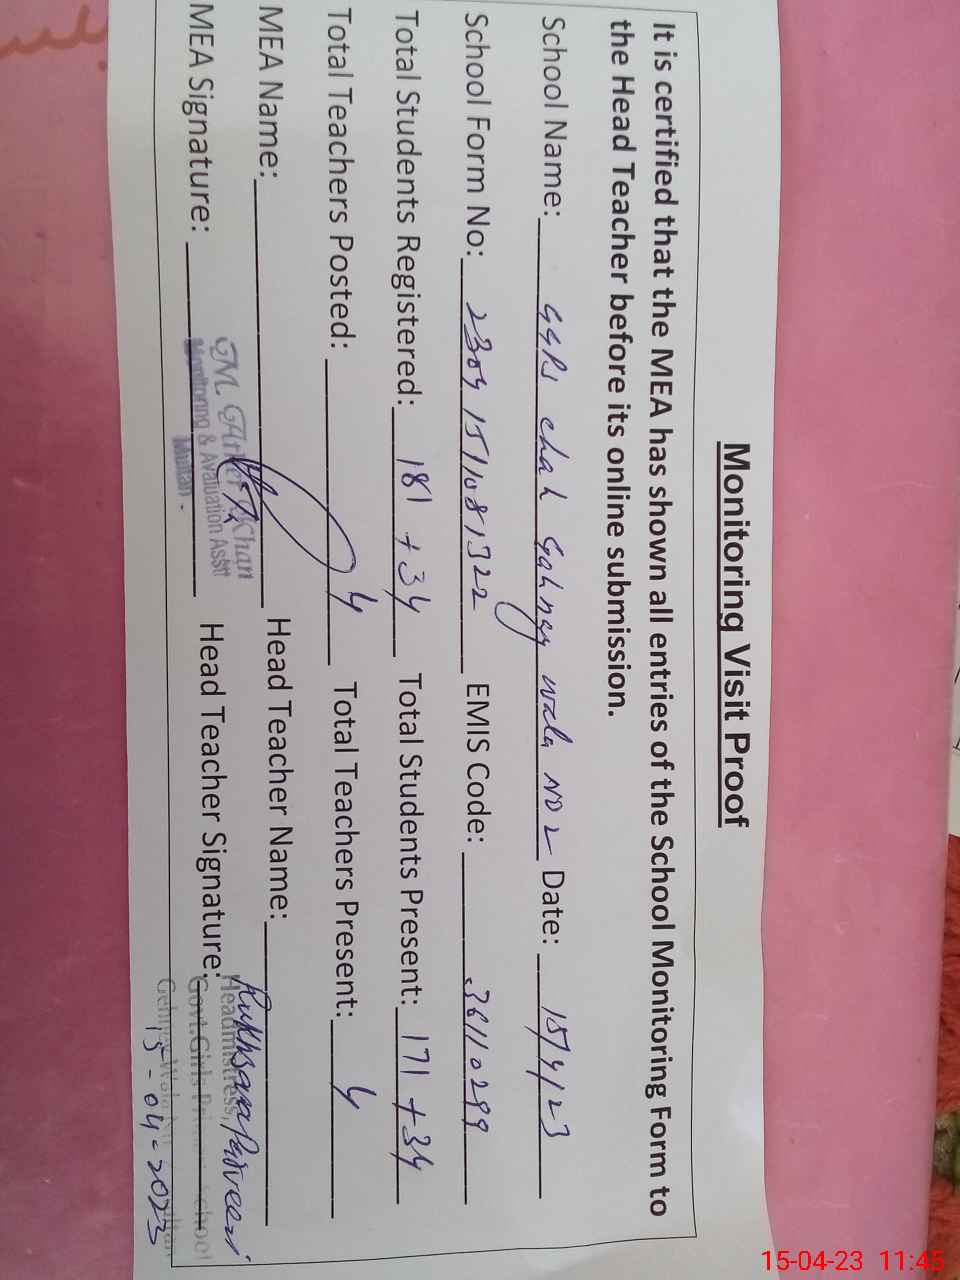 Monitoring Visit Proof
It is certified that the MEA has shown all entries of the School Monitoring Form to
the Head Teacher before its online submission.
School Name: GGPS chah Gahnay wala NO 2 Date: 15/4/23
School Form No: 23041511081322 EMIS Code: 36110299
Total Students Registered: 181 + 34 Total Students Present: 171 + 34
Total Teachers Posted: 4 Total Teachers Present: 4
MEA Name: Head Teacher Name: Rukhsana Parveen
M. Khan
MEA Signature: Head Teacher Signature: Headmistress,
Monitoring & Avaluation Asstt
Multan.
Govt. Girls School
15-04-2023
15-04-23 11:45